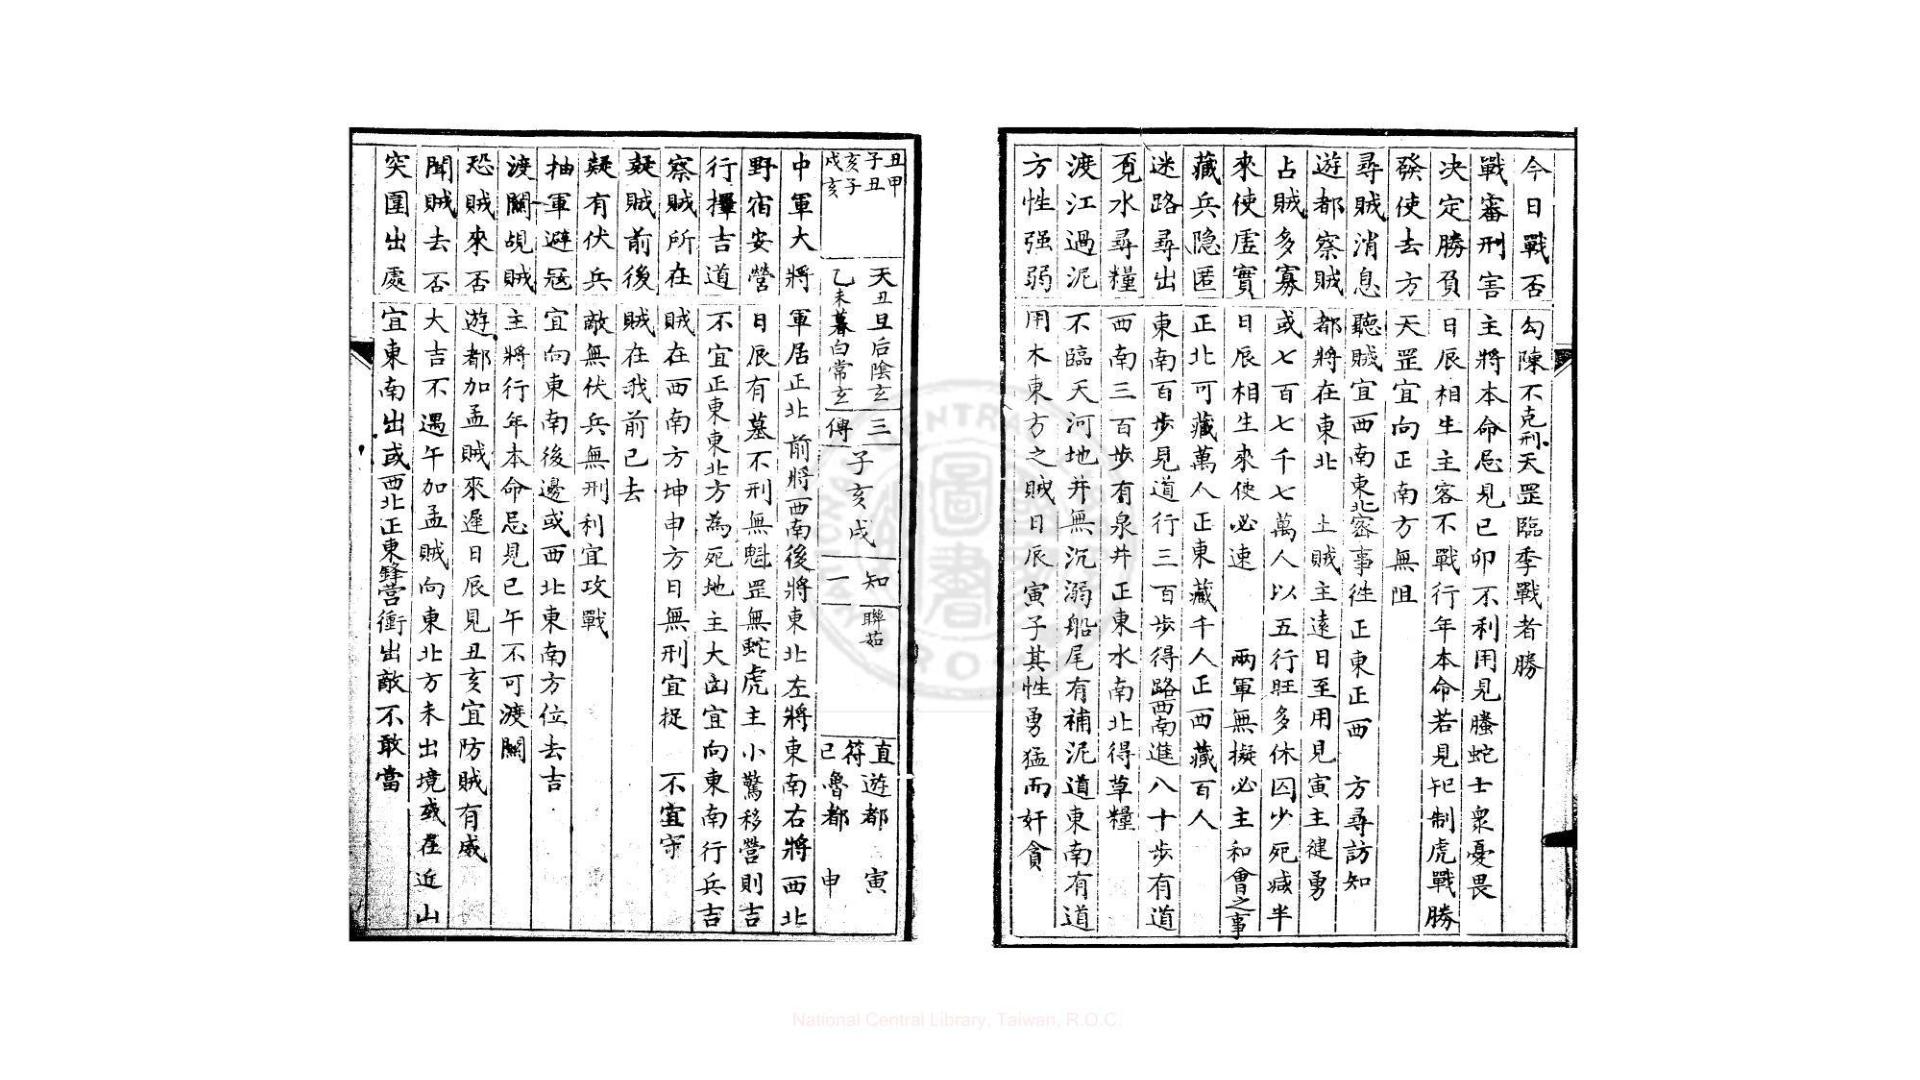 今日戰否 勾陳不克刑天罡臨季戰者勝
戰審刑害 主將本命忌見己卯不利用見螣蛇士衆憂畏
决定勝負 日辰相生主客不戰行年本命若見制虎戰勝
發使去方 天罡宜向正南方無阻
尋賊消息 聽賊宜西南東北密事徃正東正西 方尋訪知
遊都察賊 都將在東北 主賊主遠日至用見寅主健勇
占賊多寡 或七百七千七萬人以五行旺多休囚少死减半
來使虛實 日辰相生來使必速 兩軍無擬必主和會之事
藏兵隐匿 正北可藏萬人正東藏千人正西藏百人
迷路尋出 東南百步見道行三百步得路西南進八十步有道
覓水尋糧 西南三百步有泉井正東水南北得草糧
渡江過泥 不臨天河地井無沉溺船尾有補泥道東南有道
方性强弱 用木東方之賊日辰寅子其性勇猛而奸貪
丑甲
子丑
亥子
戌亥
天丑旦后陰玄
乙未暮白常玄
三傳
子亥戌
知一
聯茹
直符巳
遊都 寅
魯都 申
中軍大將 軍居正北前將西南後將東北左將東南右將西北
野宿安營 日辰有墓不刑無魁罡無蛇虎主小驚移營則吉
行擇吉道 不宜正東東北方為死地主大凶宜向東南行兵吉
察賊所在 賊在西南方坤申方日無刑宜捉 不宜守
疑賊前後 賊在我前已去
疑有伏兵 敵無伏兵無刑利宜攻戰
抽軍避冦 宜向東南後邊或西北東南方位去吉
渡關覘賊 主將行年本命忌見巳午不可渡關
恐賊來否 遊都加孟賊來遲日辰見丑亥宜防賊有威
聞賊去否 大吉不遇午加孟賊向東北方未出境或在近山
突圍出處 宜東南出或西北正東鋒營衝出敵不敢當
National Central Library, Taiwan, R.O.C.